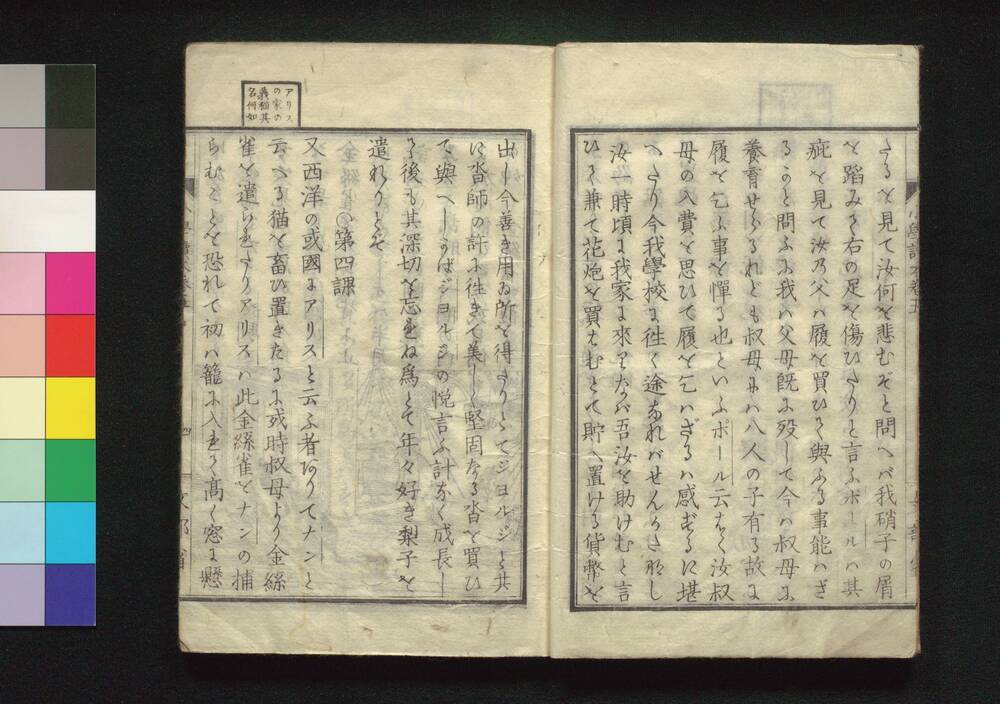 たるを見て汝何を悲むぞと問へバ我硝子の屑
を蹈みて右の足を傷ひたりと言ふポールハ其
疵を見て汝乃父ハ履を買ひて與ふる事能ハざ
るのと問ふに我ハ父母既に歿して今ハ叔母に
養育せらるれども叔母にハ八人の子有る故に
履を乞ふ事を憚る也といふポール云はく汝叔
母の入費を思ひて履を乞ハざるハ感ずるに堪
へたり今我學校に往く途なれバせんかた那し
汝一時頃に我家に來りなバ吾汝を助けむと言
ひて兼て花炮を買はむとて貯へ置ける貨幣を
出し今善き用ゐ所を得たりとてジヨルジと共
に沓師の許に往きて美しく堅固なる沓を買ひ
て與へしかばジヨルジの悦言ふ計なく成長し
て後も其深切を忘れね為とて年々好き梨子を
遣れりとぞ
○第四課
又西洋の或國にアリスと云ふ者ありてナンと
云へる猫を畜ひ置きたるに或時叔母より金絲
雀を遣られたりアリスハ此金絲雀をナンの捕
らむことを恐れて初ハ籠に入れて高く窓に懸
アリス
の家の
義猫其
名何如
小學讀本卷五
四
文部省